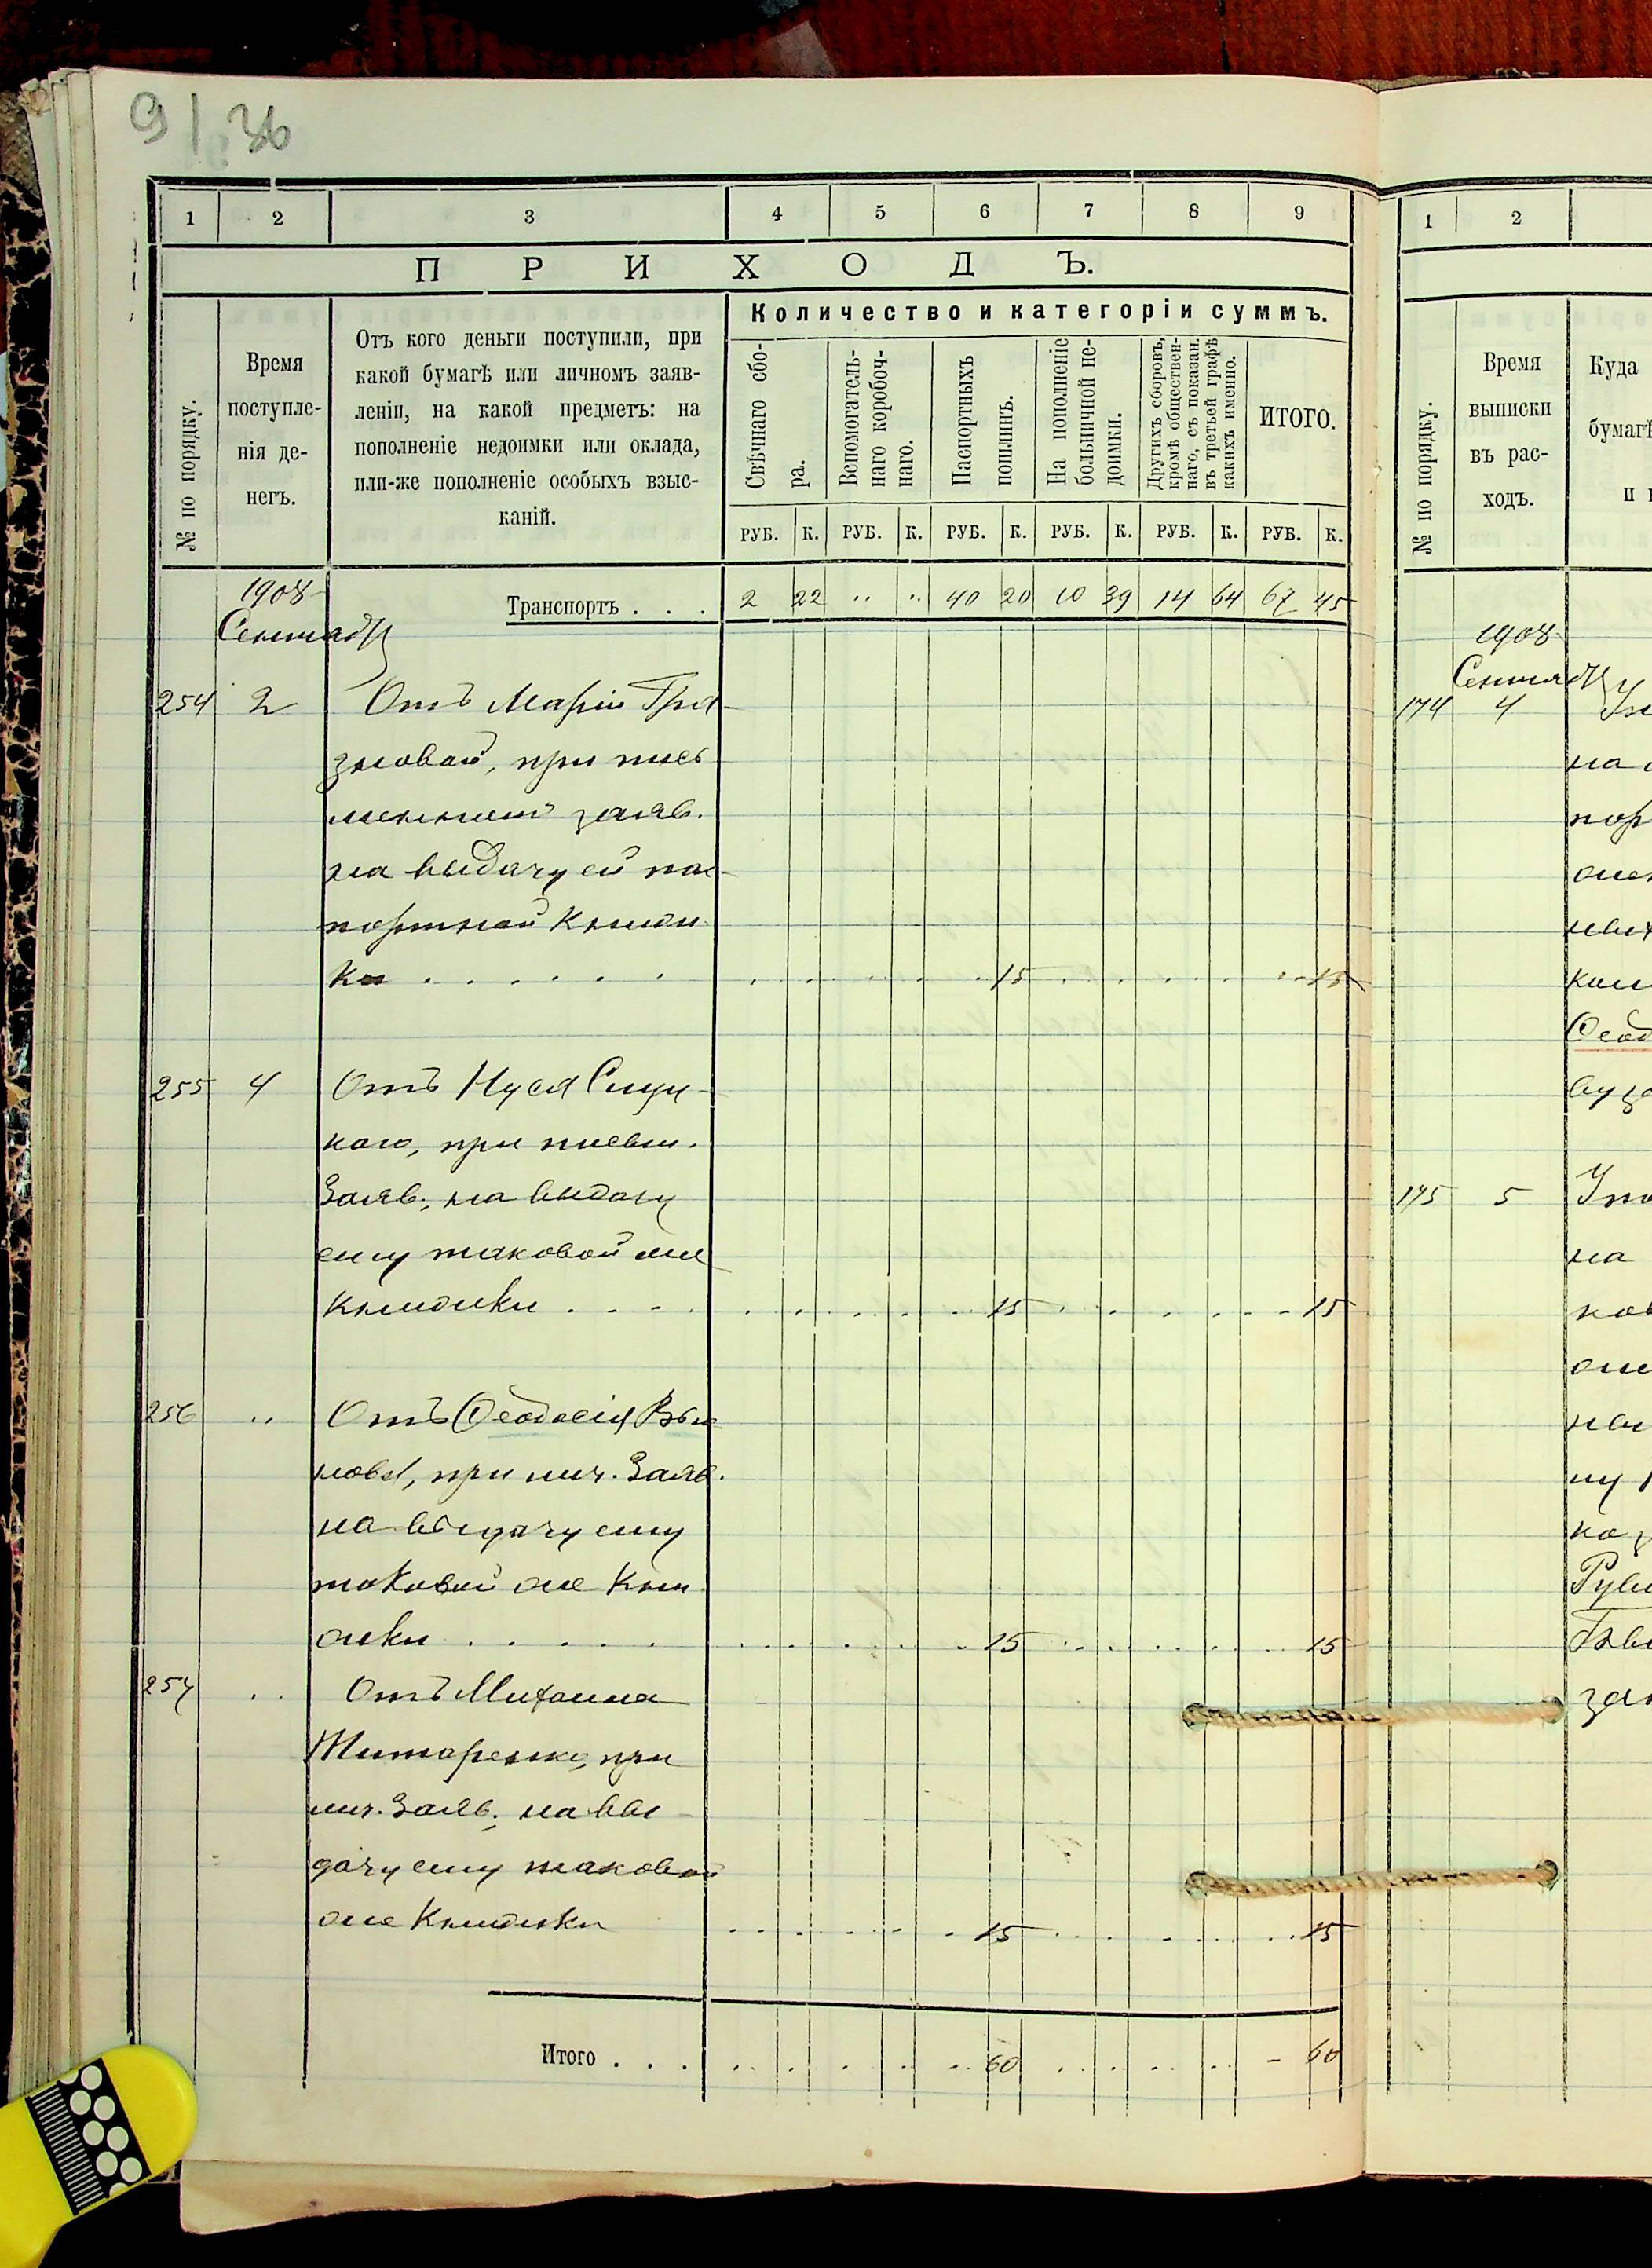 9 | 36
1 2 3 4 5 6 7 8 9
ПРИХОДЪ.
№ по порядку.
Время
поступле-
нія де-
негъ.
Отъ кого деньги поступили, при
какой бумагѣ или личномъ заяв-
леніи, на какой предметъ: на
пополненіе недоимки или оклада,
или-же пополненіе особыхъ взыс-
каній.
Количество и категоріи суммъ.
Свѣчнаго сбо-
ра.
Вспомогатель-
наго коробоч-
наго.
Паспортныхъ
пошлинъ.
На пополненіе
больничной не-
доимки.
Другихъ сборовъ,
кромѣ обществен-
наго, съ показан.
въ третьей графѣ
какихъ именно.
ИТОГО.
РУБ. К. РУБ. К. РУБ. К. РУБ. К. РУБ. К. РУБ. К.
1908
Транспортъ . . . 2 22 " " 40 20 10 39 14 64 67 45
Сентябр
254 2 Отъ Маріи Гря-
зновой, при пись
менном заяв.
на выдачу ей пас-
портной книж
ки . . . . . . 15 15
255 4 Отъ Нуся Слуц-
каго, при письм.
Заяв. на выдачу
ему таковой же
книжки . . . . 15 15
256 " Отъ Ѳеодосія
нова, при лич. Заяв.
на выдачу ему
таковой же кни
жки . . . . . 15 15
257 " Отъ Михаила
Титаренко, при
лич. Заяв. на вы-
дачу ему таковой
же Книжки 15 15
Итого . . . 60 60
1 2
№ по порядку.
Время
выписки
въ рас-
ходъ.
Куда
бумагѣ
и
1908
Сентябр
174 4
на
пор
Ѳеод
175 5
на
зак